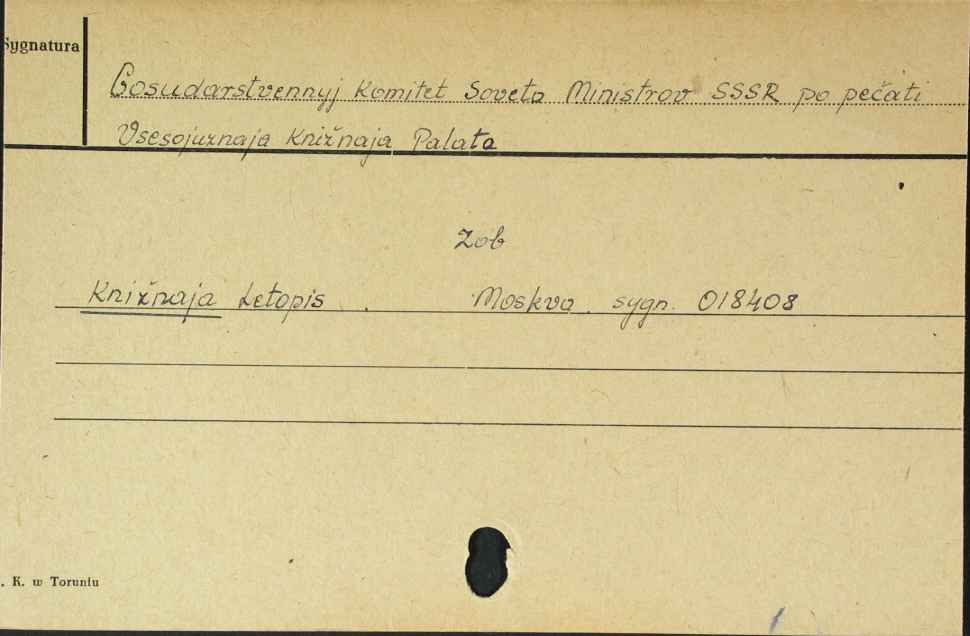 Sygnatura
Gosudarstvennyj Komitet Soveta Ministrov SSSR po pečati
Vsesojuznaja Knižnaja Palata
Zob
Knižnaja Letopis . Moskva . sygn. 018408
. K. w Toruniu